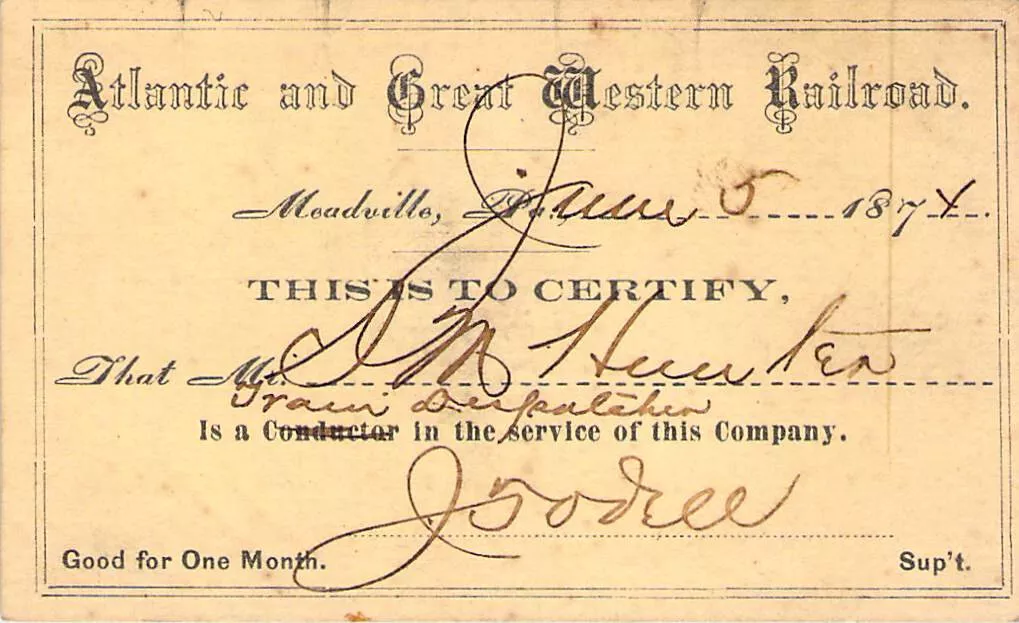 Atlantic and Great Western Railroad.
Meadville, Pa., June 5 1874.
THIS IS TO CERTIFY,
That Mr. S M Hunter
Train Despatcher
Is a Conductor in the service of this Company.
J Odell
Good for One Month. Sup't.